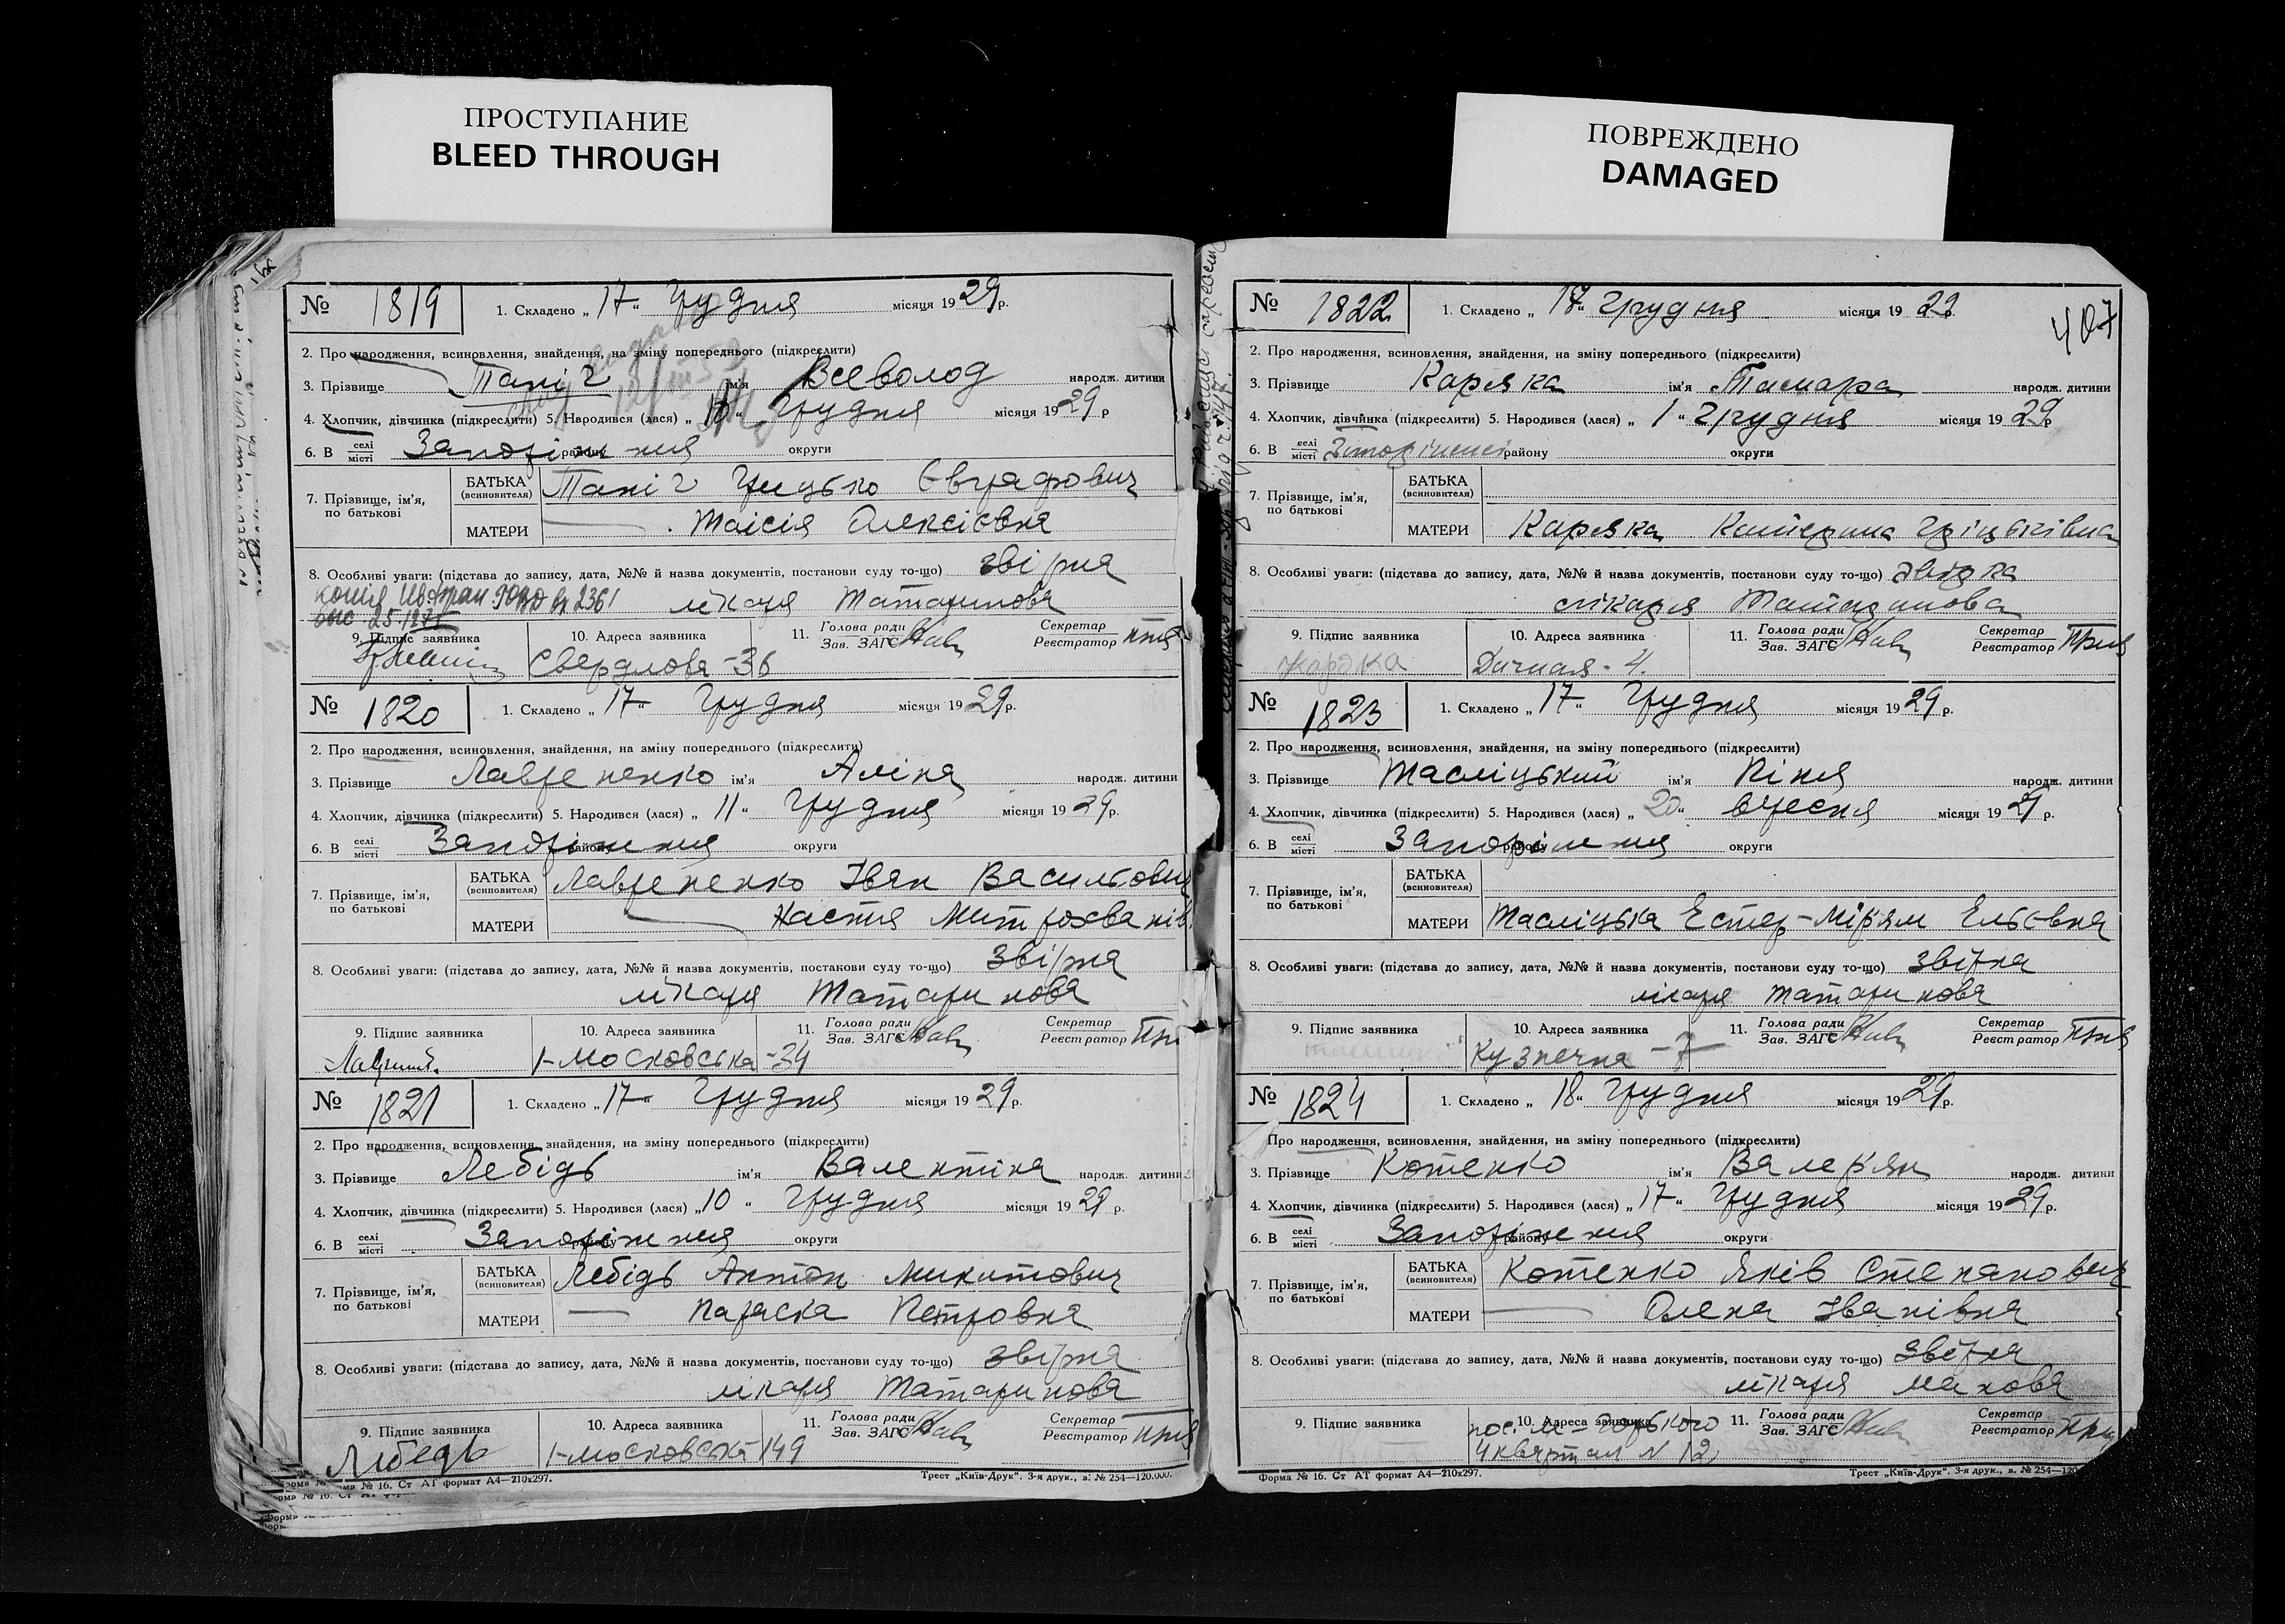 ПРОСТУПАНИЕ
BLEED THROUGH
ПОВРЕЖДЕНО
DAMAGED
№ 1819 1. Складено „ 17 “ Грудня місяця 1929 р.
2. Про народження, всиновлення, знайдення, на зміну попереднього (підкреслити)
3. Прізвище Таніч ім'я Всеволод народж. дитини
4. Хлопчик, дівчинка (підкреслити) 5. Народився (лася) „ 10 “ Грудня місяця 1929 р
6. В селі місті Запоріжжя району округи
7. Прізвище, ім'я, по батькові
БАТЬКА (всиновителя) Таніч Грицько Євграфович
МАТЕРИ — Таісія Олексієвна
8. Особливі уваги: (підстава до запису, дата, №№ й назва документів, постанови суду то-що) звірка
лікаря Татаринова
9. Підпис заявника 10. Адреса заявника 11. Голова ради Зав. ЗАГС Секретар Реєстратор
Свердлова-36
№ 1820 1. Складено „ 17 “ Грудня місяця 1929 р.
2. Про народження, всиновлення, знайдення, на зміну попереднього (підкреслити)
3. Прізвище Лавриненко ім'я Аліна народж. дитини
4. Хлопчик, дівчинка (підкреслити) 5. Народився (лася) „ 11 “ Грудня місяця 1929 р.
6. В селі місті Запоріжжя району округи
7. Прізвище, ім'я, по батькові
БАТЬКА (всиновителя) Лавриненко Іван Васильович
МАТЕРИ — Настя Митрофанів.
8. Особливі уваги: (підстава до запису, дата, №№ й назва документів, постанови суду то-що) Звірка
лікаря Татаринова
9. Підпис заявника 10. Адреса заявника 11. Голова ради Зав. ЗАГС Секретар Реєстратор
1-Московська-34
№ 1821 1. Складено „ 17 “ Грудня місяця 1929 р.
2. Про народження, всиновлення, знайдення, на зміну попереднього (підкреслити)
3. Прізвище Лебідь ім'я Валентіна народж. дитини
4. Хлопчик, дівчинка (підкреслити) 5. Народився (лася) „ 10 “ Грудня місяця 1929 р.
6. В селі місті Запоріжжя району округи
7. Прізвище, ім'я, по батькові
БАТЬКА (всиновителя) Лебідь Антон Микитович
МАТЕРИ — Параска Петровна
8. Особливі уваги: (підстава до запису, дата, №№ й назва документів, постанови суду то-що) звірка
лікаря Татаринова
9. Підпис заявника 10. Адреса заявника 11. Голова ради Зав. ЗАГС Секретар Реєстратор
Лебедь 1-московська 149
Форма № 16. Ст АТ формат А4—210х297. Трест „Київ-Друк". 3-я друк., з. № 254—120.000.
407
№ 1822 1. Складено „ 17 “ Грудня місяця 1929 р.
2. Про народження, всиновлення, знайдення, на зміну попереднього (підкреслити)
3. Прізвище Каряка ім'я Тамара народж. дитини
4. Хлопчик, дівчинка (підкреслити) 5. Народився (лася) „ 1 “ Грудня місяця 1929 р
6. В селі місті району округи
7. Прізвище, ім'я, по батькові
БАТЬКА (всиновителя)
МАТЕРИ Каряка Катерина Гріцьківна
8. Особливі уваги: (підстава до запису, дата, №№ й назва документів, постанови суду то-що) звірка
лікаря Татаринова
9. Підпис заявника 10. Адреса заявника 11. Голова ради Зав. ЗАГС Секретар Реєстратор
Дачная-4.
№ 1823 1. Складено „ 17 “ Грудня місяця 1929 р.
2. Про народження, всиновлення, знайдення, на зміну попереднього (підкреслити)
3. Прізвище Тасліцький ім'я Піня народж. дитини
4. Хлопчик, дівчинка (підкреслити) 5. Народився (лася) „ 20 “ вресня місяця 1929 р.
6. В селі місті Запоріжжя району округи
7. Прізвище, ім'я, по батькові
БАТЬКА (всиновителя)
МАТЕРИ Тасліцька Естер-Мір'ям Ельєвна
8. Особливі уваги: (підстава до запису, дата, №№ й назва документів, постанови суду то-що) звірка
лікаря Татаринова
9. Підпис заявника 10. Адреса заявника 11. Голова ради Зав. ЗАГС Секретар Реєстратор
Кузнечна-7
№ 1824 1. Складено „ 18 “ Грудня місяця 1929 р.
Про народження, всиновлення, знайдення, на зміну попереднього (підкреслити)
3. Прізвище Котенко ім'я Валер'ян народж. дитини
4. Хлопчик, дівчинка (підкреслити) 5. Народився (лася) „ 17 “ Грудня місяця 1929 р.
6. В селі місті Запоріжжя району округи
7. Прізвище, ім'я, по батькові
БАТЬКА (всиновителя) Котенко Яків Степанович
МАТЕРИ — Олена Іванівна
8. Особливі уваги: (підстава до запису, дата, №№ й назва документів, постанови суду то-що) Звірка
лікаря
9. Підпис заявника 10. Адреса заявника 11. Голова ради Зав. ЗАГС Секретар Реєстратор
пос. М-Горького
4 квартал № 12
Форма № 16. Ст АТ формат А4—210х297. Трест „Київ-Друк". 3-я друк., з. № 254—120